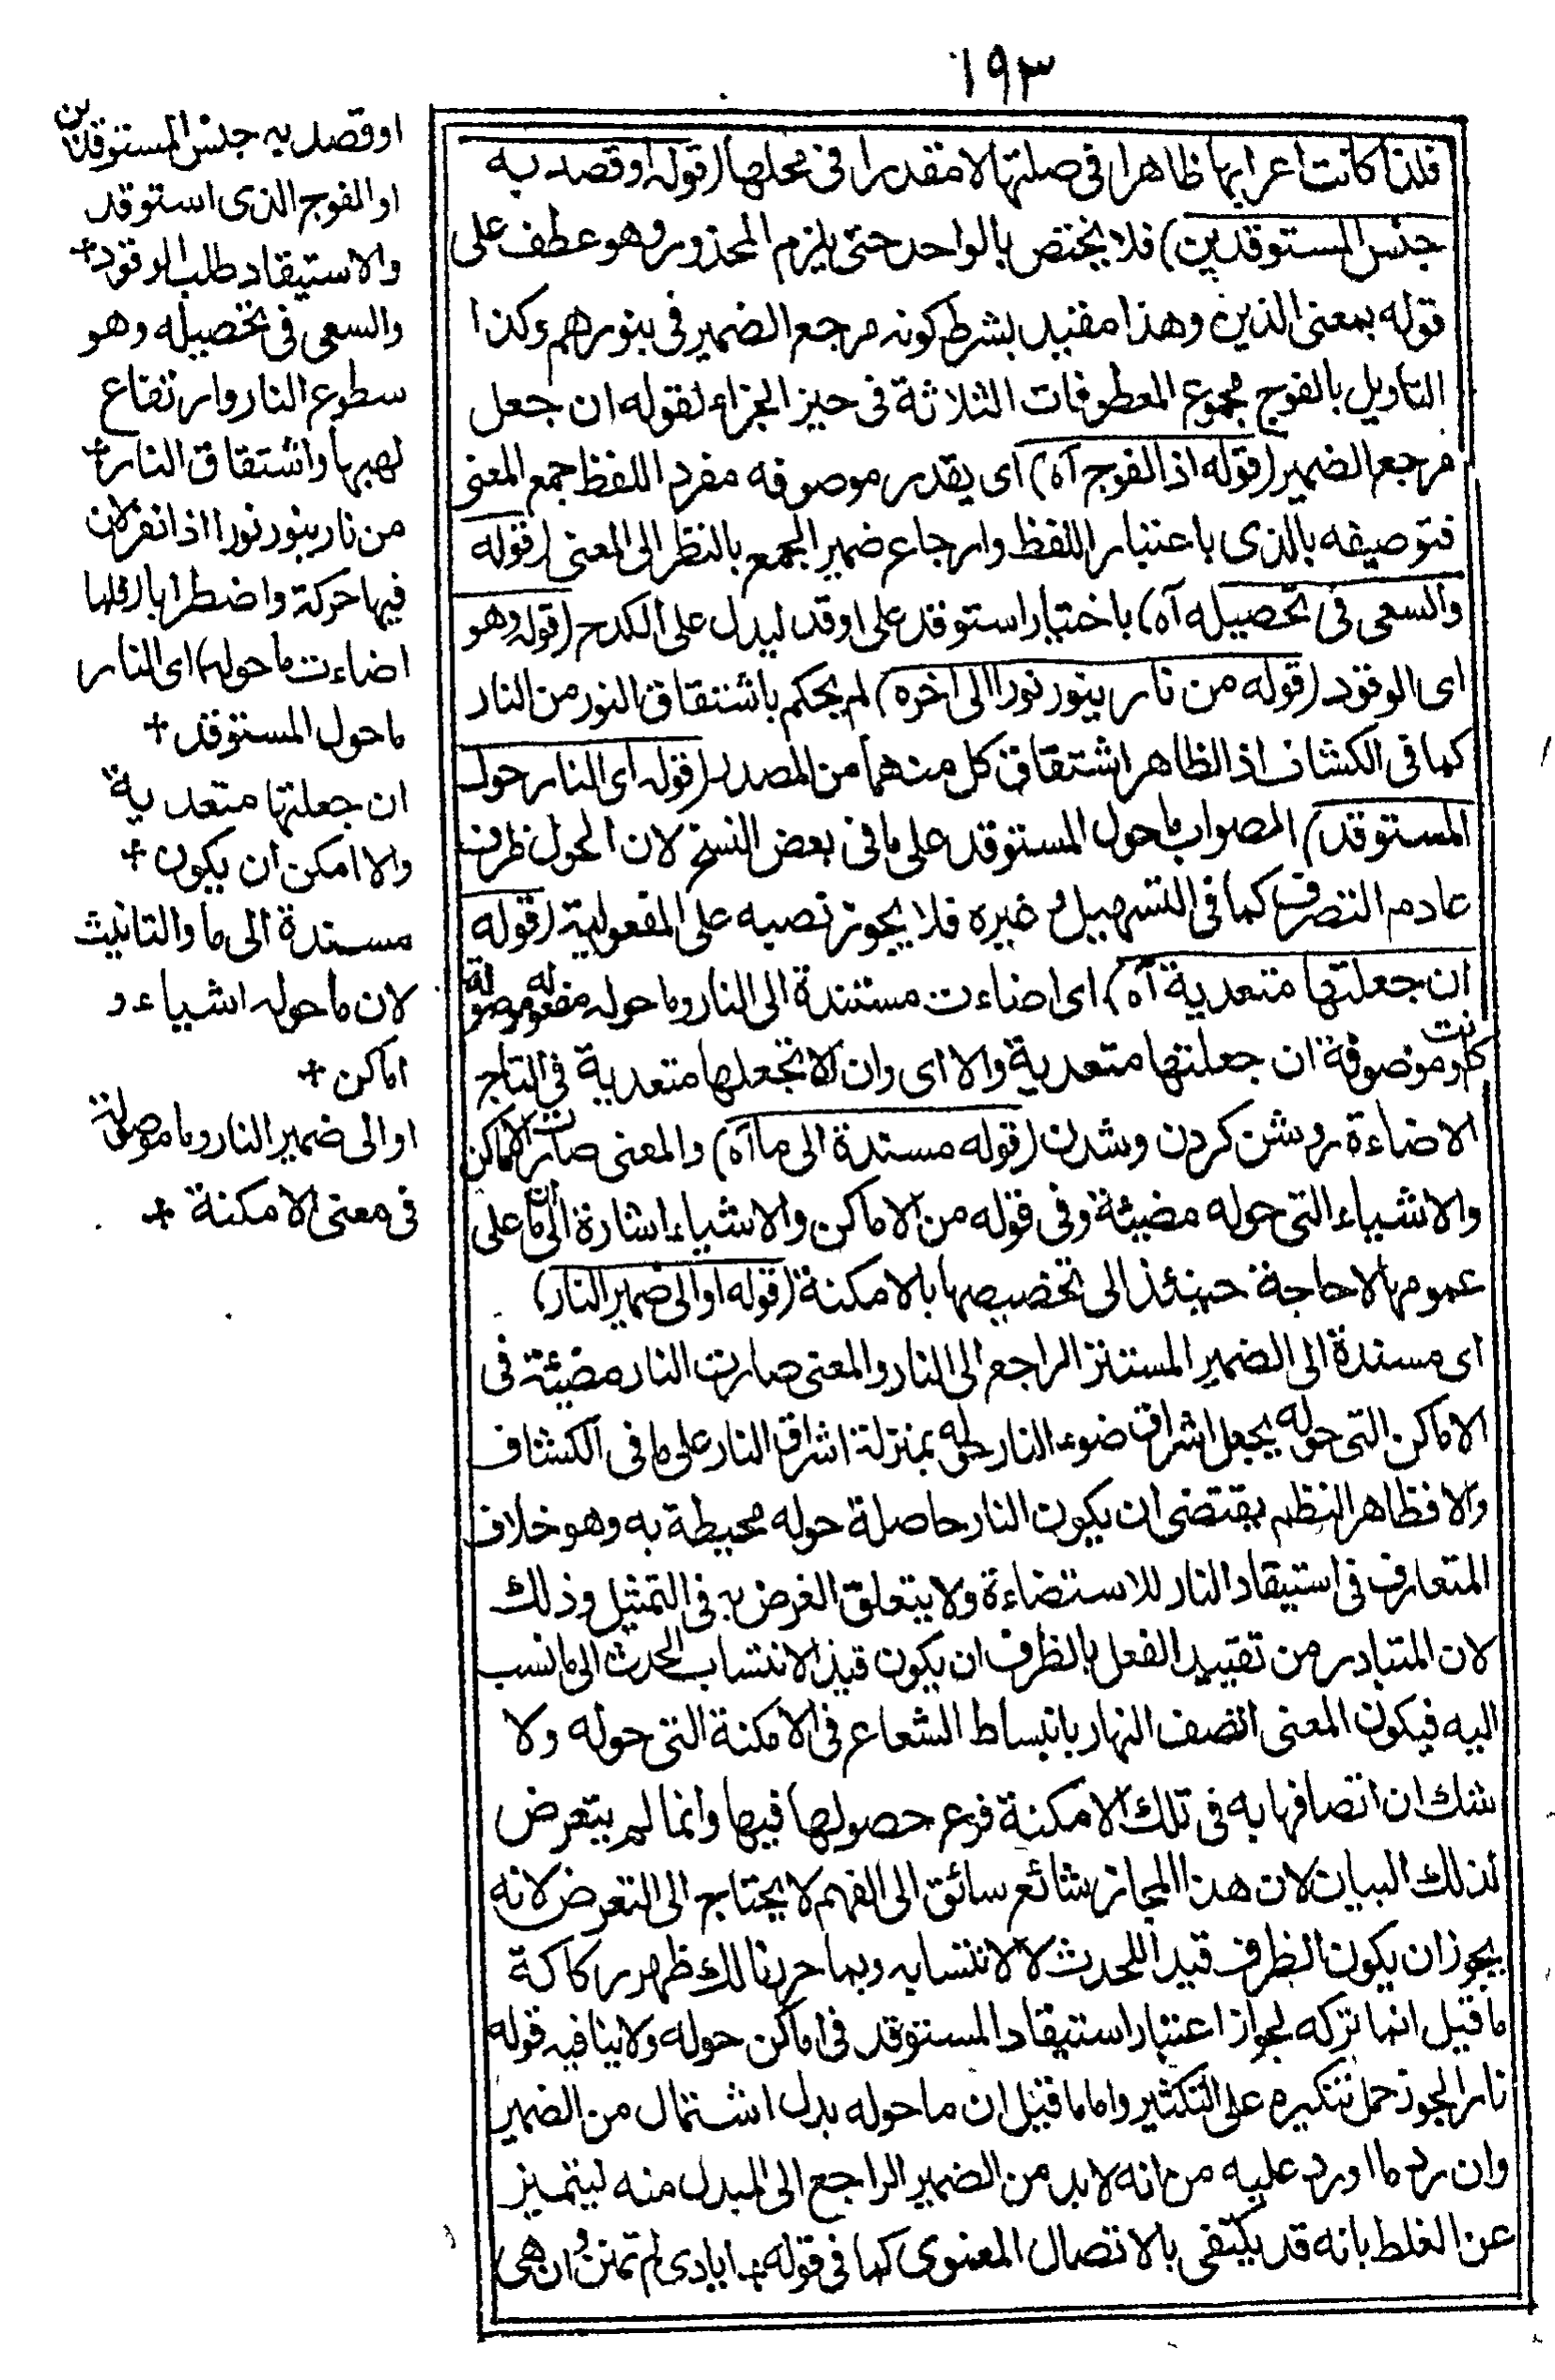 ١٩٣
فلذا كانت اعرابها ظاهرا فى صلتها لا مقدرا فى محلها (قوله او قصد به
جنس المستوقدين) فلا يختص بالواحد حتى يلزم المحذور وهو عطف على
قوله بمعنى الذين وهذا مقيد بشرط كونه مرجع الضمير فى بنورهم وكذا
التاويل بالفوج مجموع المعطوفات الثلاثة فى حيز الجزاء لقوله ان جعل
مرجع الضمير (قوله اذ الفوج آه) اى يقدر موصوفه مفرد اللفظ جمع المعنى
فتوصيفه بالذى باعتبار اللفظ وارجاع ضمير الجمع بالنظر الى المعنى (قوله
والسعى فى تحصيله آه) باختيار استوقد على اوقد ليدل على الكدح (قوله وهو
اى الوقود (قوله من نار ينور نورا الى اخره) لم يحكم باشتقاق النور من النار
كما فى الكشاف اذ الظاهر اشتقاق كل منهما من المصدر (قوله اى النار حول
المستوقد) الصواب ما حول المستوقد على ما فى بعض النسخ لان الحول ظرف
عادم التصرف كما فى التسهيل وغيره فلا يجوز نصبه على المفعولية (قوله
ان جعلتها متعدية آه) اى اضاءت مستندة الى النار وما حوله مفعوله موصولة
كانت او موصوفة ان جعلتها متعدية والا اى وان لا تجعلها متعدية فى التاج
الاضاءة روشن كردن وشدن (قوله مسندة الى ما آه) والمعنى صارت الاماكن
والاشياء التى حوله مضيئة وفى قوله من الاماكن والاشياء اشارة الى ان ما على
عمومها لا حاجة حينئذ الى تخصيصها بالامكنة (قوله او الى ضمير النار)
اى مسندة الى الضمير المستتر الراجع الى النار والمعنى صارت النار مضيئة فى
الاماكن التى حوله يجعل اشراق ضوء النار حوله بمنزلة اشراق النار على ما فى الكشاف
والا فظاهر النظم يقتضى ان يكون النار حاصلة حوله محيطة به وهو خلاف
المتعارف فى استيقاد النار للاستضاءة ولا يتعلق الغرض به فى التمثيل وذلك
لان المتبادر من تقييد الفعل بالظرف ان يكون قيدا لانتساب الحدث الى ما نسب
اليه فيكون المعنى اتصف النهار بانبساط الشعاع فى الامكنة التى حوله ولا
شك ان اتصافها به فى تلك الامكنة فرع حصولها فيها وانما لم يتعرض
لذلك البيان لان هذا المجاز شائع سائق الى الفهم لا يحتاج الى التعرض لانه
يجوز ان يكون الظرف قيدا للحدث لا لانتسابه وبما حررنا لك ظهر ركاكة
ما قيل انما تركه لجواز اعتبار استيقاد المستوقد فى اماكن حوله ولا ينافيه قوله
نارا لجواز حمل تنكيره على التكثير واما ما قيل ان ما حوله بدل اشتمال من الضمير
وان رد ما اورد عليه من انه لا بد من الضمير الراجع الى المبدل منه ليتميز
عن الغلط بانه قد يكتفى بالاتصال المعنوى كما فى قوله + ايادى لم تمنن وان هى
او قصد به جنس المستوقدين
او الفوج الذى استوقد
والاستيقاد طلب الوقود +
والسعى فى تحصيله وهو
سطوع النار وارتفاع
لهبها واشتقاق النار +
من نار ينور نورا اذا نفر لان
فيها حركة واضطرابا (فلما
اضاءت ما حوله) اى النار
ما حول المستوقد +
ان جعلتها متعدية
والا امكن ان يكون +
مسندة الى ما والتانيث
لان ما حوله اشياء و
اماكن +
او الى ضمير النار وما موصولة
فى معنى الامكنة +